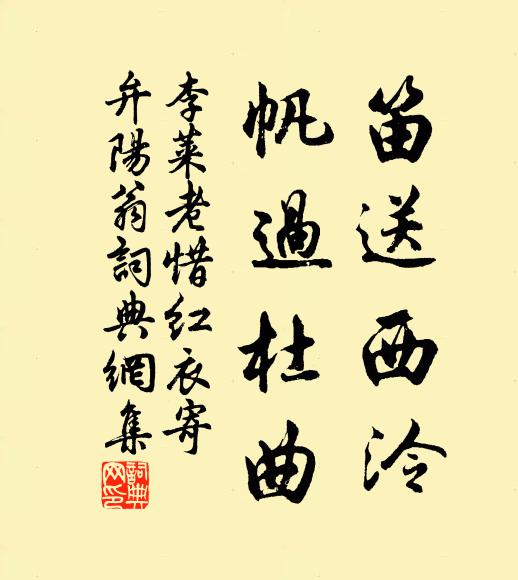 笛送西泠
帆過杜曲
李萊老惜红衣寄
弁陽翁詞典網集
詞典网印